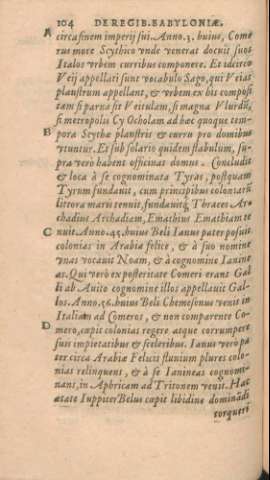 104 DE REGIB. BABYLONIÆ.
A circa finem imperij sui. Anno. 3. huius, Come
rus more Scythico vnde venerat docuit suos
Italos vrbem curribus componere. Et idcirco
Veij appellati sunt vocabulo Sago, qui Veias
plaustrum appellant, & vrbem ex his composi
tam si parua sit Veitulam, si magna Vlurdũ,
si metropolis Cy Ocholam ad hæc quoque tem-
B pora Scythæ plaustris & curru pro domibus
vtuntur. Et sub solario quidem stabulum, su-
pra verò habent officinas domus. Concludit
& loca à se cognominata Tyras, postquam
Tyrum fundauit, cum principibus coloniarũ
littora maris tenuit, fundauitq́ Thraces Ar-
chadius Archadiam, Emathius Emathiam te
C nuit. Anno. 45. huius Beli Ianus pater posuit
colonias in Arabia felice, & à suo nomine
vnas vocauit Noam, & à cognomine Ianine
as. Qui verò ex posteritate Comeri erant Gal
li ab Auito cognomine illos appellauit Gal-
los. Anno. 56. huius Beli Chemesonus venit in
Italiam ad Comeros, & non comparente Co-
D mero, cœpit colonias regere atque corrumpere
suis impietatibus & sceleribus. Ianus verò pa
ter circa Arabiæ Felicis fluuium plures colo-
nias relinquent, & à se Ianineas cognomi-
nans, in Aphricam ad Tritonem venit. Hac
ætate Iuppiter Belus cœpit libidine dominãdi
torqueri